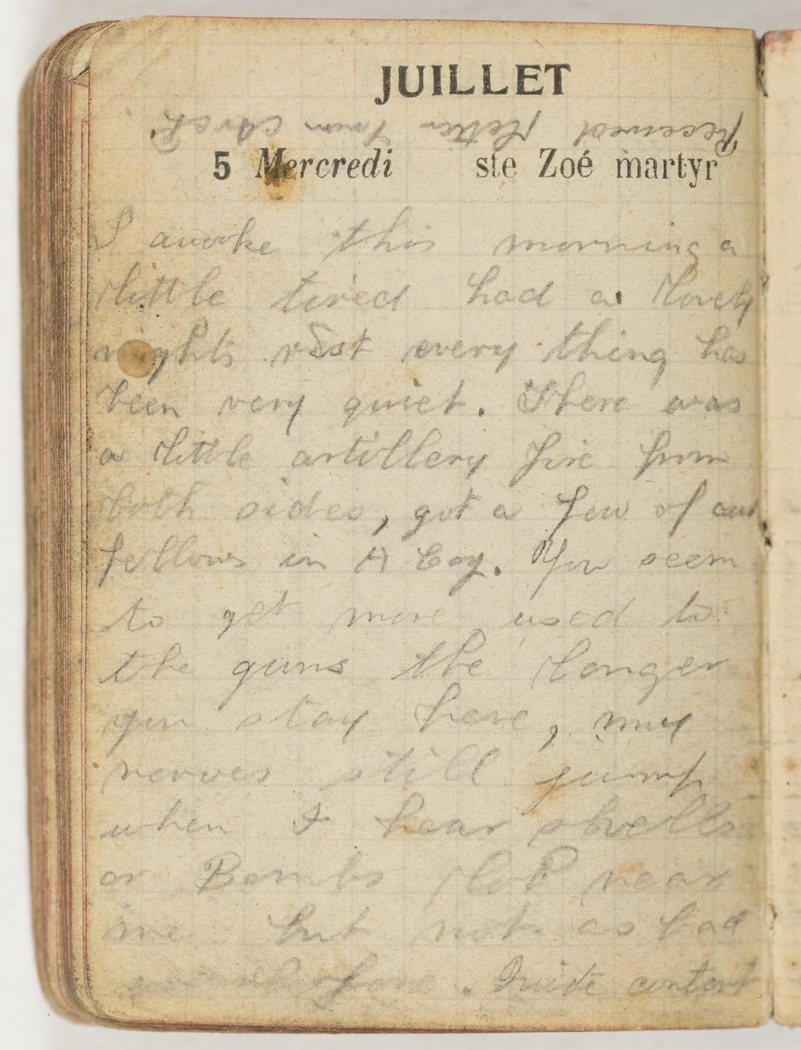 JUILLET
Received letter from Arch
5 Mercredi ste Zoé martyr
I awoke this morning a
little tired had a lovely
nights rest every thing has
been very quiet. There was
a little artillery fire from
both sides, got a few of our
fellows in A Coy. You seem
to get more used to
the guns the longer
you stay here, my
nerves still jump
when I hear shells
or Bombs near
me but not as bad
as before. Quite content